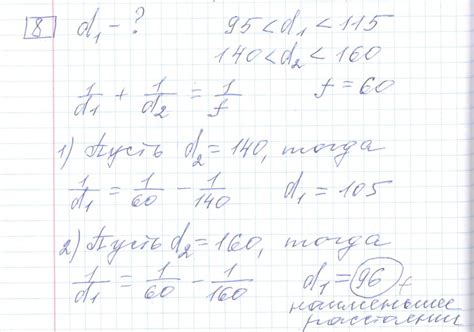 8 d₁ - ? 95 < d₁ < 115
140 < d₂ < 160
1/d₁ + 1/d₂ = 1/f f = 60
1) Пусть d₂ = 140, тогда
1/d₁ = 1/60 - 1/140 d₁ = 105
2) Пусть d₂ = 160, тогда
1/d₁ = 1/60 - 1/160 d₁ = 96
наименьшее
расстояни